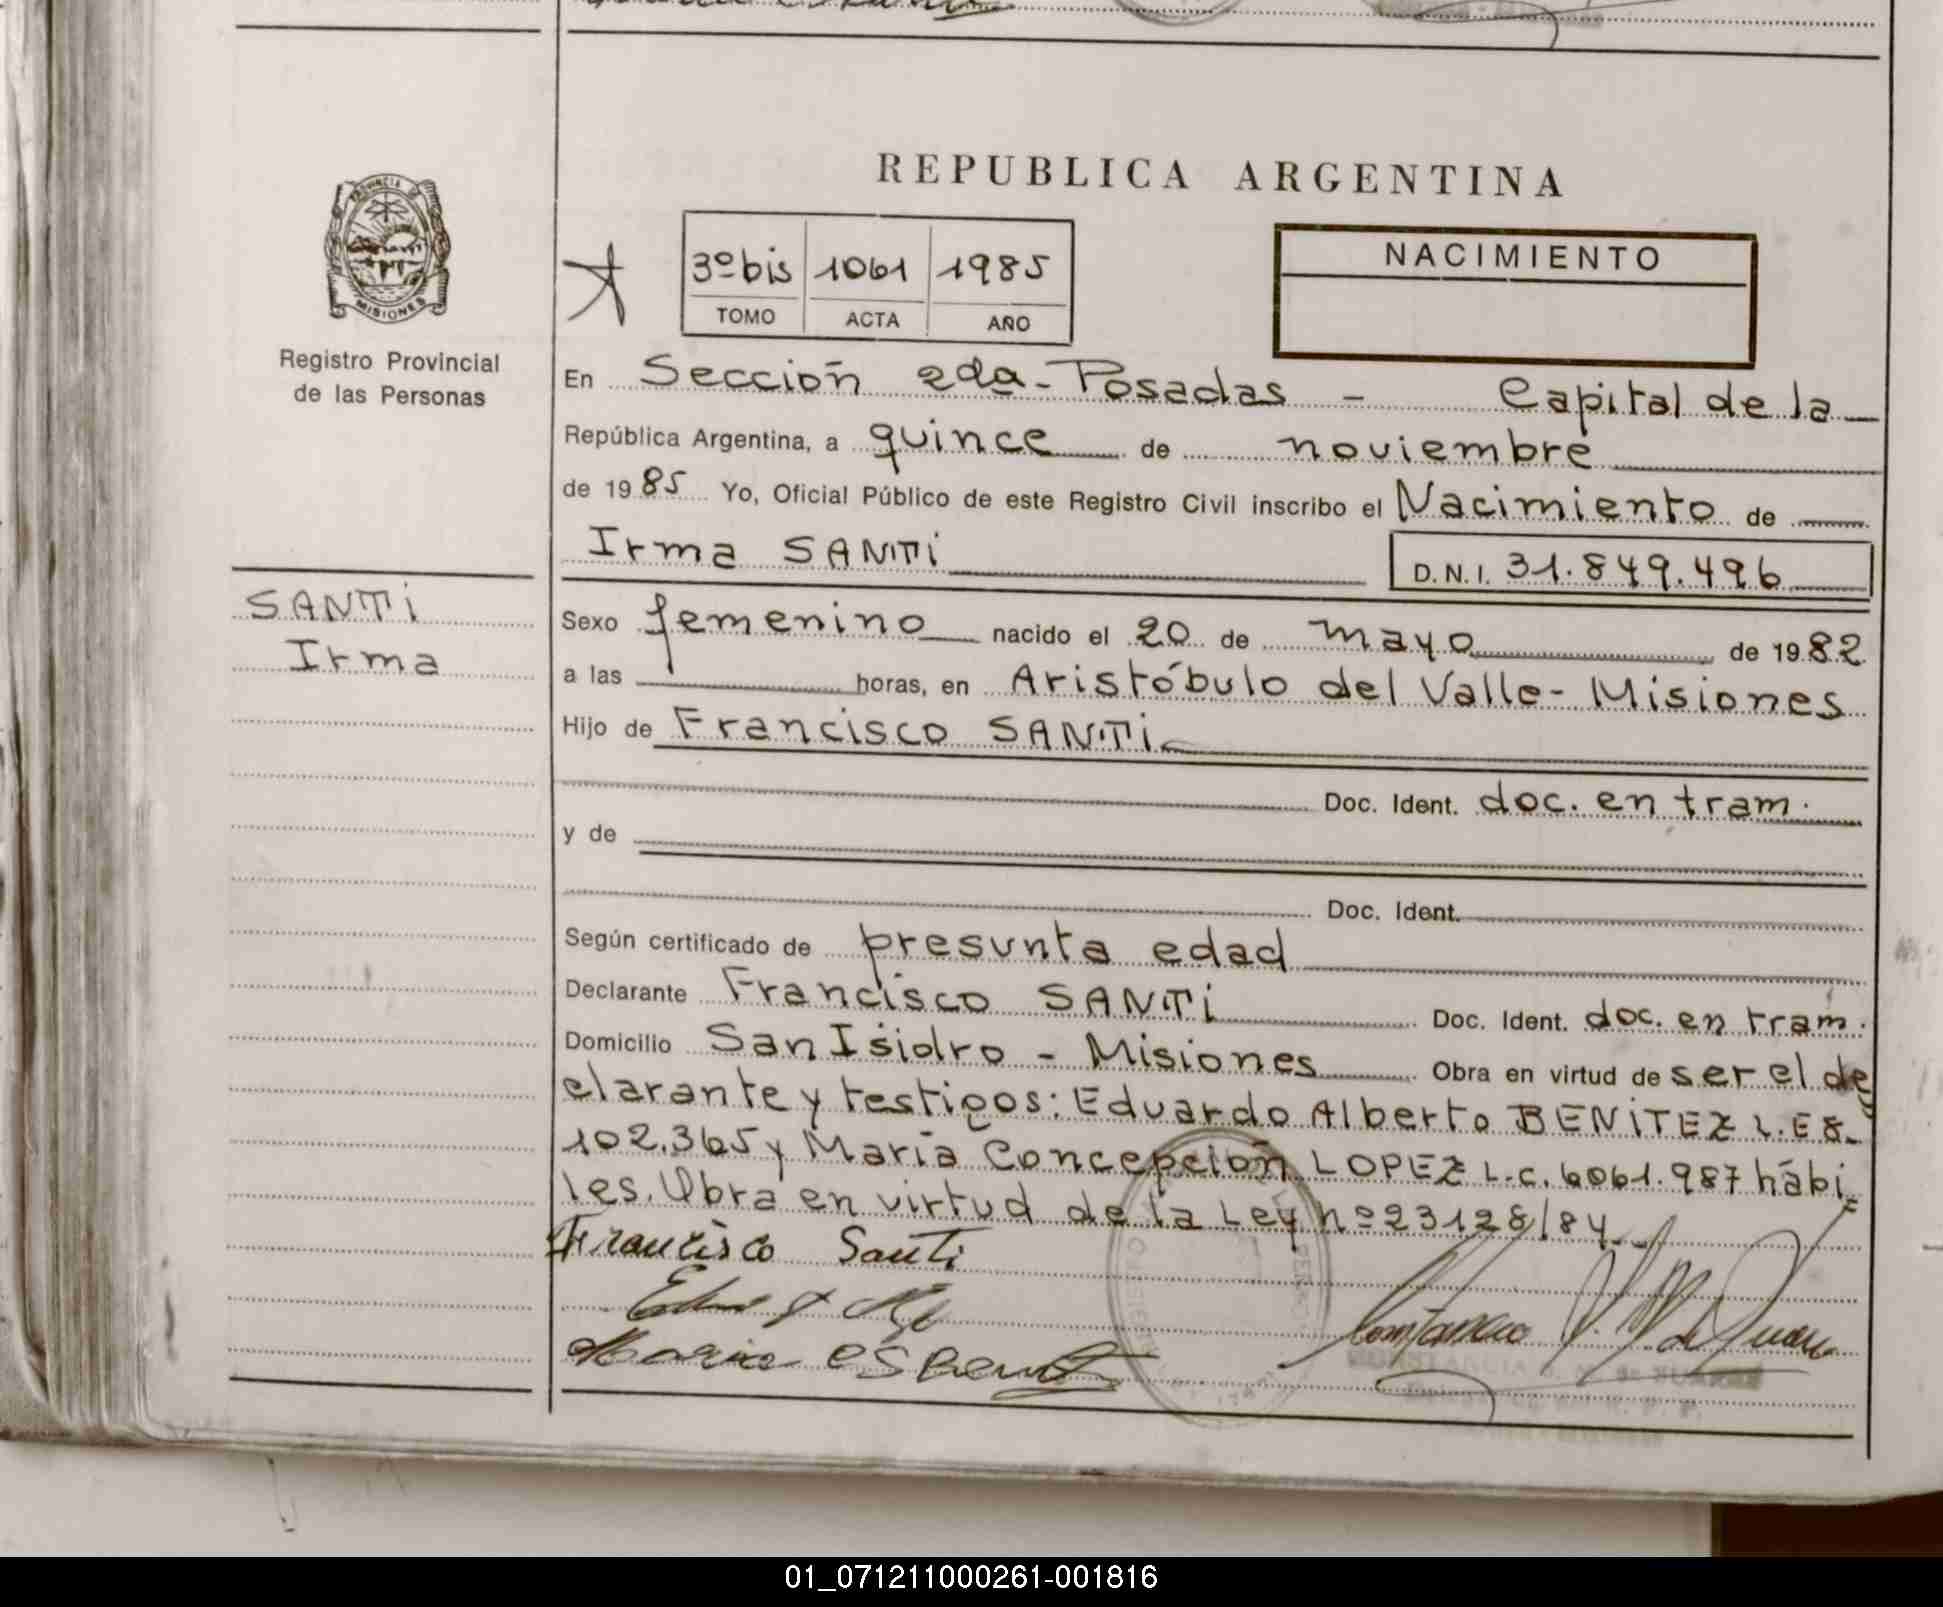 REPUBLICA ARGENTINA
PROVINCIA DE
MISIONES
Registro Provincial
de las Personas
3º bis 1061 1985
TOMO ACTA AÑO
NACIMIENTO
En Sección 2da - Posadas - Capital de la
República Argentina, a quince de noviembre
de 1985 Yo, Oficial Público de este Registro Civil inscribo el Nacimiento de
Irma SANTi
D.N.I. 31.849.496
SANTi
Irma
Sexo femenino nacido el 20 de mayo de 1982
a las horas, en Aristóbulo del Valle - Misiones
Hijo de Francisco SANTi
Doc. Ident. doc. en tram.
y de
Doc. Ident.
Según certificado de presunta edad
Declarante Francisco SANTi Doc. Ident. doc. en tram.
Domicilio San Isidro - Misiones Obra en virtud de ser el de
clarante y testigos: Eduardo Alberto BENiTEZ L.E 8.
102.365 y María Concepción LOPEZ L.C. 6061.987 hábi
les. Obra en virtud de la Ley nº 23128/84
Francisco Santi
01_071211000261-001816